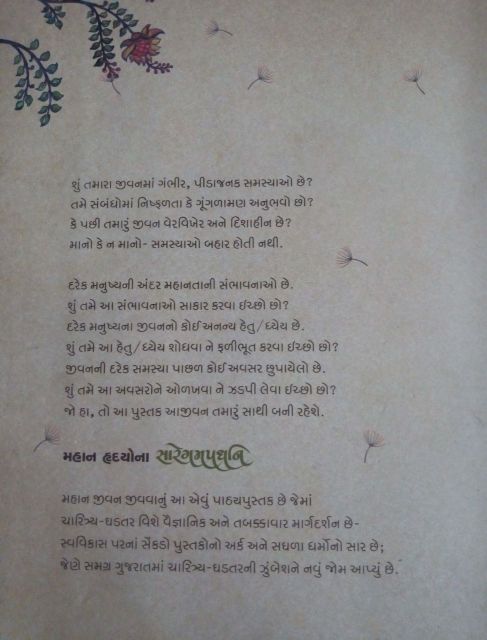 શું તમારા જીવનમાં ગંભીર, પીડાજનક સમસ્યાઓ છે?
તમે સંબંધોમાં નિષ્ફળતા કે ગૂંગળામણ અનુભવો છો?
કે પછી તમારું જીવન વેરવિખેર અને દિશાહીન છે?
માનો કે ન માનો- સમસ્યાઓ બહાર હોતી નથી.
દરેક મનુષ્યની અંદર મહાનતાની સંભાવનાઓ છે.
શું તમે આ સંભાવનાઓ સાકાર કરવા ઈચ્છો છો?
દરેક મનુષ્યના જીવનનો કોઈ અનન્ય હેતુ/ધ્યેય છે.
શું તમે આ હેતુ/ધ્યેય શોધવા ને ફળીભૂત કરવા ઈચ્છો છો?
જીવનની દરેક સમસ્યા પાછળ કોઈ અવસર છુપાયેલો છે.
શું તમે આ અવસરોને ઓળખવા ને ઝડપી લેવા ઈચ્છો છો?
જો હા, તો આ પુસ્તક આજીવન તમારું સાથી બની રહેશે.
મહાન હૃદયોના સારેગમપધનિ
મહાન જીવન જીવવાનું આ એવું પાઠ્યપુસ્તક છે જેમાં
ચારિત્ર્ય-ઘડતર વિશે વૈજ્ઞાનિક અને તબક્કાવાર માર્ગદર્શન છે-
સ્વવિકાસ પરનાં સેંકડો પુસ્તકોનો અર્ક અને સઘળા ધર્મોનો સાર છે;
જેણે સમગ્ર ગુજરાતમાં ચારિત્ર્ય-ઘડતરની ઝુંબેશને નવું જોમ આપ્યું છે.